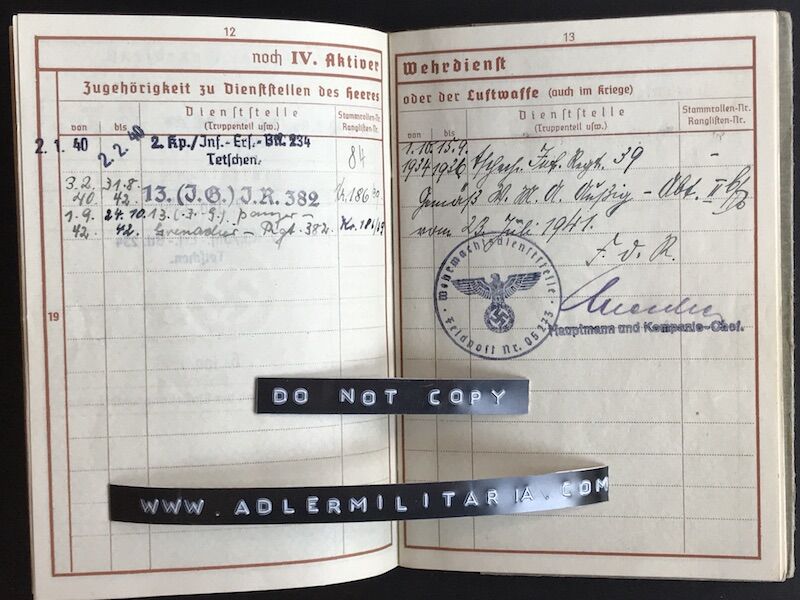 12
noch IV. Aktiver
Zugehörigkeit zu Dienststellen des Heeres
von
bis
Dienststelle
(Truppenteil usw.)
Stammrollen-Nr.
Ranglisten-Nr.
2. 1. 40
2. 2. 40
2. Kp./Inf.-Ers.-Btl. 234
Tetschen.
84
3. 2. 40
31. 8. 42
13. (I.G.) J.R. 382
1. 9. 42.
24. 10. 42.
13. (I. G.) Panzer-
Grenadier-Rgt. 382.
19
13
Wehrdienst
oder der Luftwaffe (auch im Kriege)
von
bis
Dienststelle
(Truppenteil usw.)
Stammrollen-Nr.
Ranglisten-Nr.
1. 10. 1934
15. 9. 1936
tschech. Inf. Regt. 39
-
Gemäß W. M. A. Außig - Abt. II
vom 23. Juli 1941.
F. d. R.
Wehrmachtsdienststelle
Feldpost Nr. 06273
Hauptmann und Kompanie-Chef.
DO NOT COPY
WWW.ADLERMILITARIA.COM